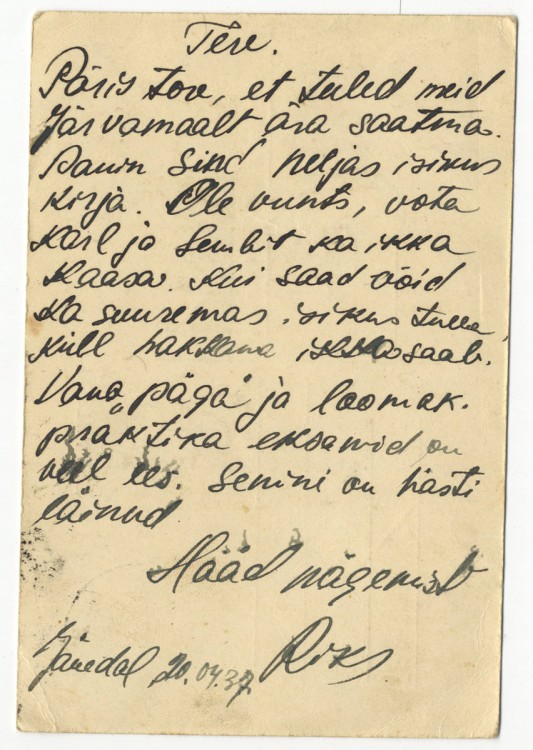 Tere.
Päris tore, et tuled meid
Järvamaalt ära saatma.
Panin Sind neljas isikus
kirja. Ole vunts, võta
Karl ja Sembit ka ikka
kaasa. Kui saad võid
ka suuremas isikus tulla,
küll hakkama ikka saab.
Vana „päga" ja loomak.
praktika eksamid on
veel ees. Senini on hästi
läinud
Hääd nägemist
Riks
Jänedal 20.04.37